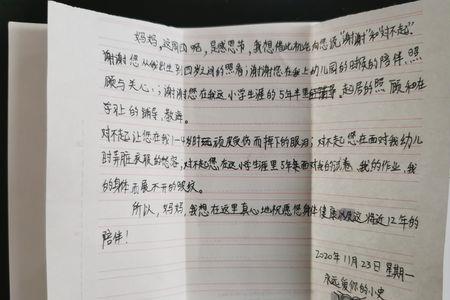 妈妈,这周四呢,是感恩节,我想借此机会向您说“谢谢”和“对不起”。
谢谢您从我出生到四岁之间的照看;谢谢您在我上幼儿园的时候的陪伴、照
顾与关心;谢谢您在我这小学生涯的5年半里 起居的照顾和在
学业上的辅导、教海。
对不起,让您在我1-4岁时玩顽皮受伤而掉下的眼泪;对不起您在面对我幼儿
时弄脏衣服的愁容;对不起您在这小学生涯里5年半面对我的试卷、我的作业、我
的身体而展不开的皱纹。
所以,妈妈,我想在这里真心地祝愿您身体健康 这将近12年的
陪伴!
2020年11月23日 星期一
永远爱你的小史